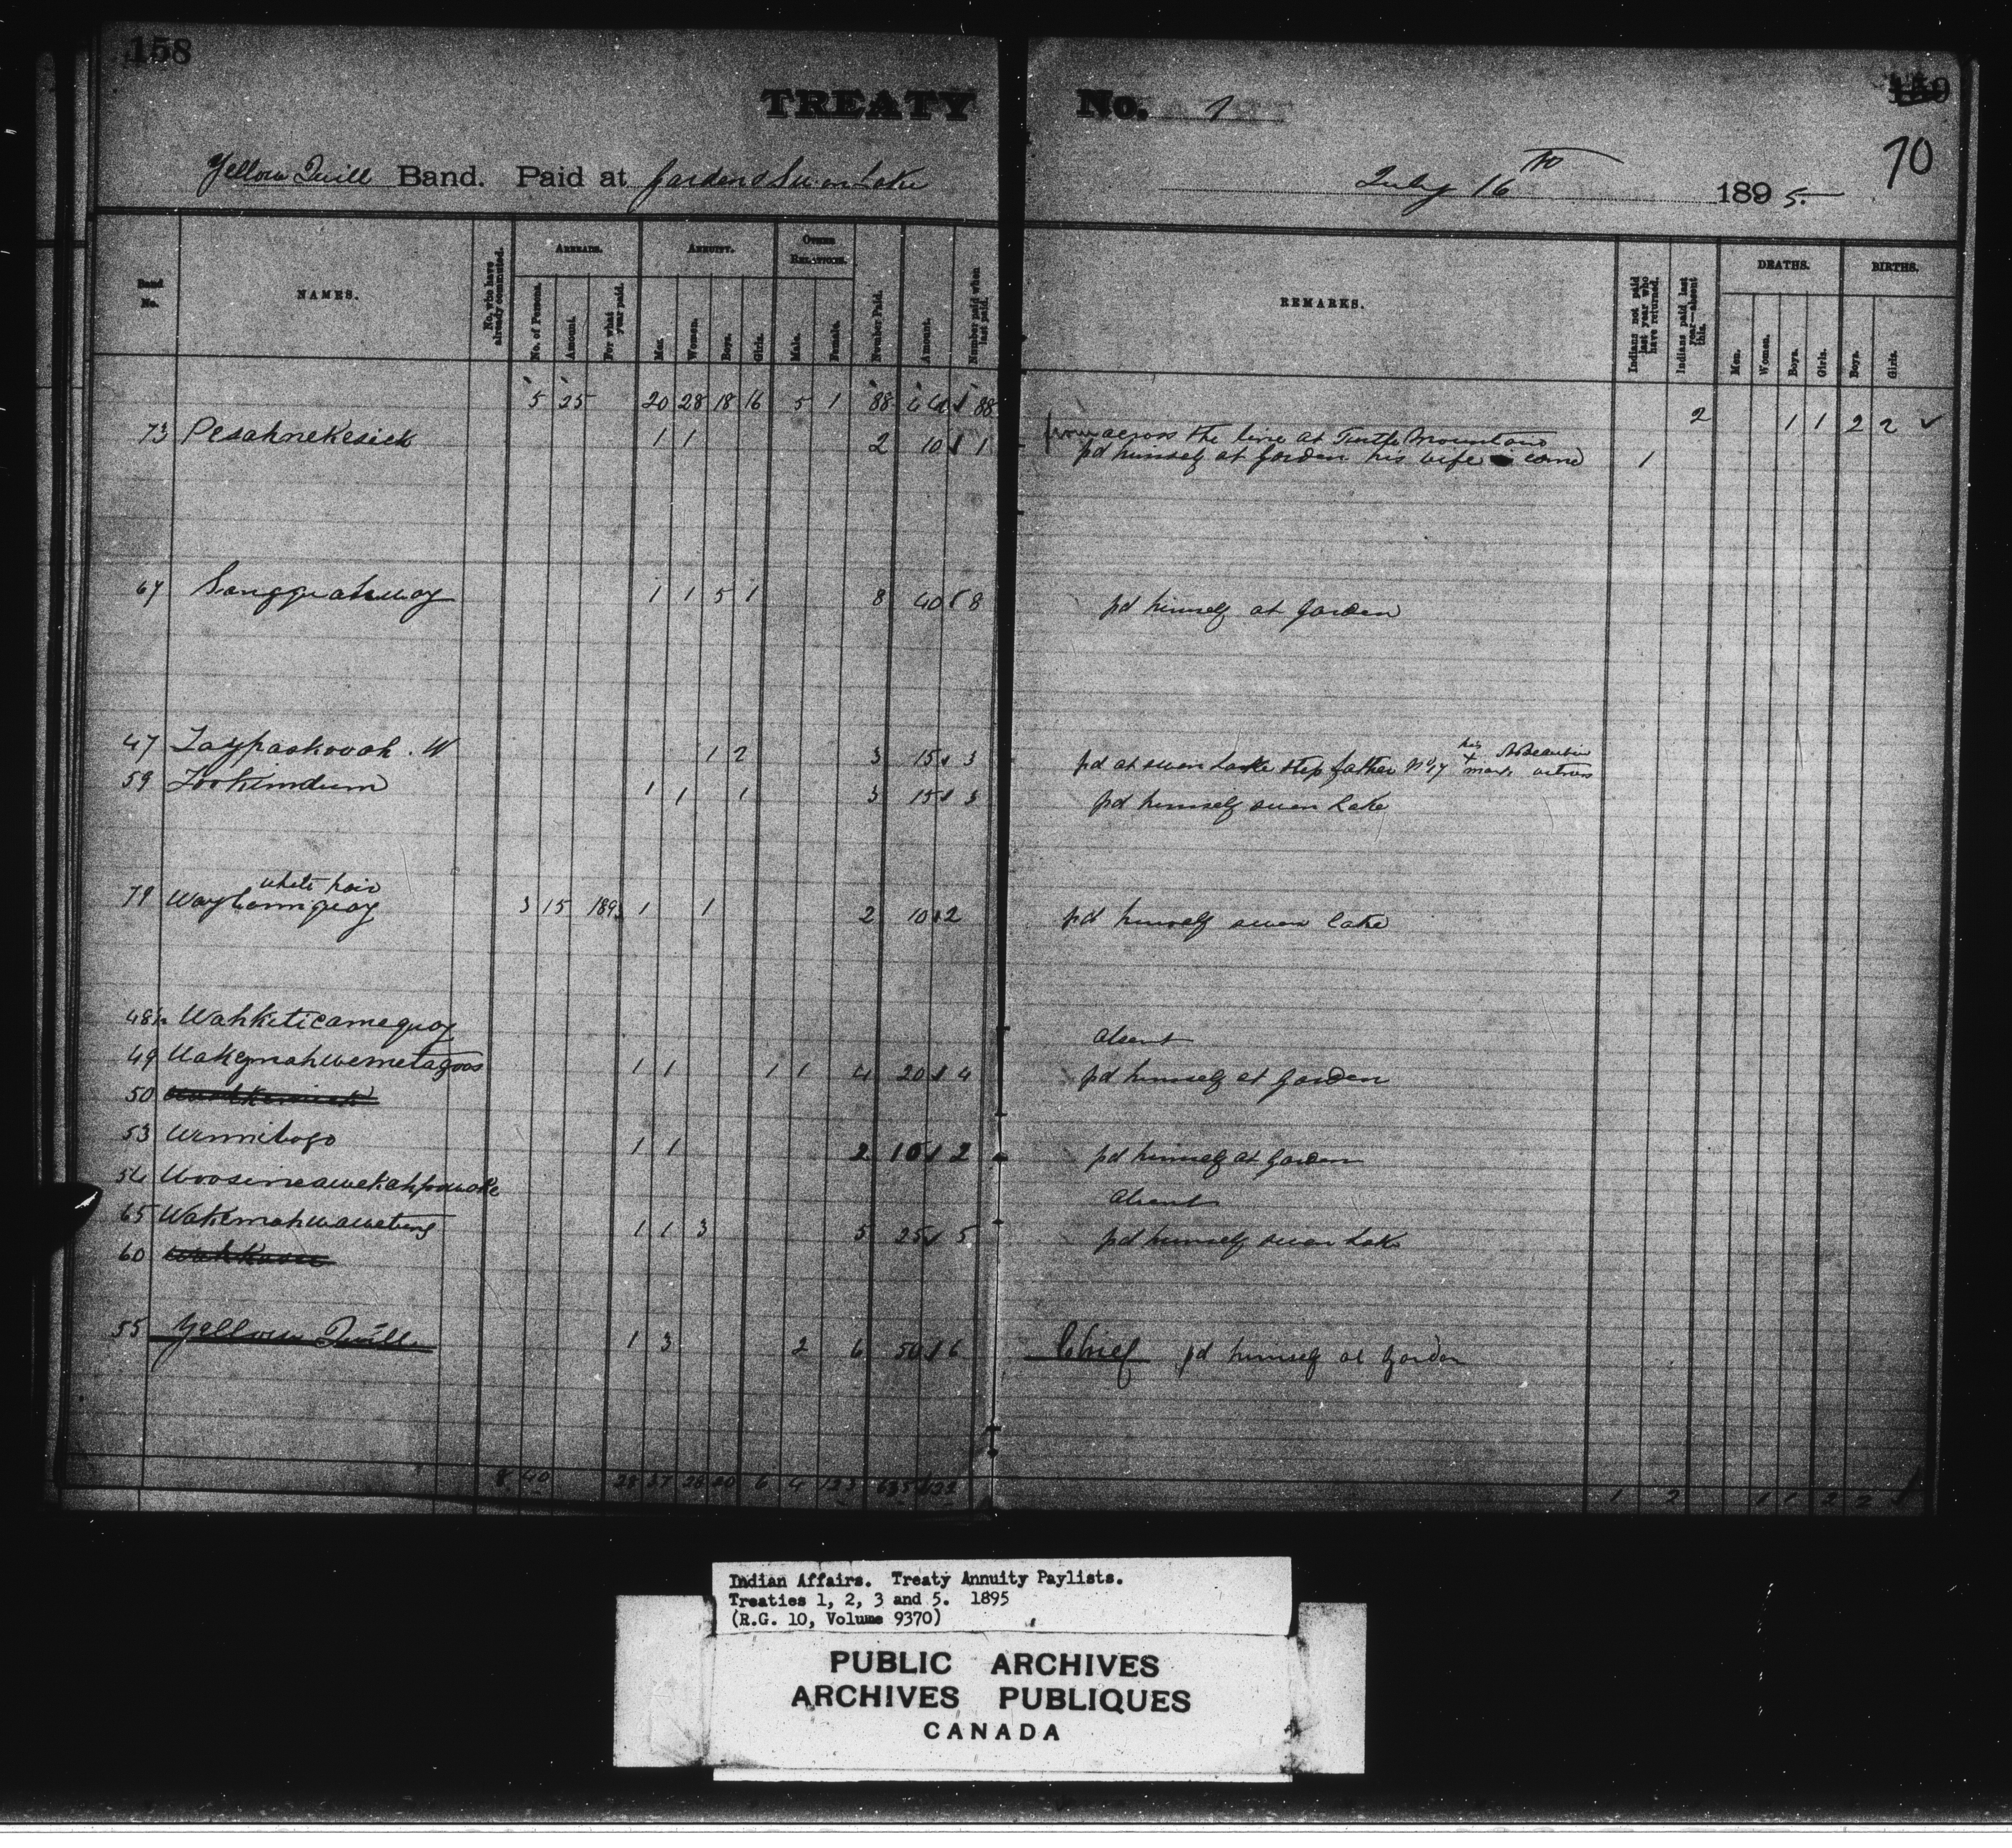 158
TREATY No. 1
159
70
Yellow Quill Band. Paid at Garden & Swan Lake July 16th 1895.
Band No. NAMES. No. who have already commuted. ARREARS. No. of Persons. Amount. For what year paid. ANNUITY. Men. Women. Boys. Girls. OTHER RELATIONS. Male. Female. Number Paid. Amount. Number paid when last paid. REMARKS. Indians not paid last year who have returned. Indians paid last year—absent this. DEATHS. Men. Women. Boys. Girls. BIRTHS. Boys. Girls.
5 25 20 28 18 16 5 1 88 88 2 1 1 2 2 ✓
from across the line at Turtle Mountains
73 Pesahnekesick 1 1 2 10 1 pd himself at Garden his wife 1
67 Sangquahway 1 1 5 1 8 40 8 pd himself at Garden
47 Taypaskooah. W 1 2 3 15 3 pd at swan Lake step father No 17 his x mark witness
59 Tookimdum 1 1 1 3 15 3 pd himself swan Lake
white hair
79 3 15 1893 1 1 2 10 2 pd himself swan lake
48 Wahkiticamequay absent
49 Wakemahwemetagoos 1 1 1 1 4 20 4 pd himself at Garden
50
53 Winnibogo 1 1 2 10 2 pd himself at Garden
54 absent
65 Wakemahwawetung 1 1 3 5 25 5 pd himself swan Lake
60
55 Yellow Quill 1 3 2 6 50 6 Chief pd himself at Garden
8 40 28 37 28 20 6 4 123 635 1 2 1 1 2 2
Indian Affairs. Treaty Annuity Paylists.
Treaties 1, 2, 3 and 5. 1895
(R.G. 10, Volume 9370)
PUBLIC ARCHIVES
ARCHIVES PUBLIQUES
CANADA